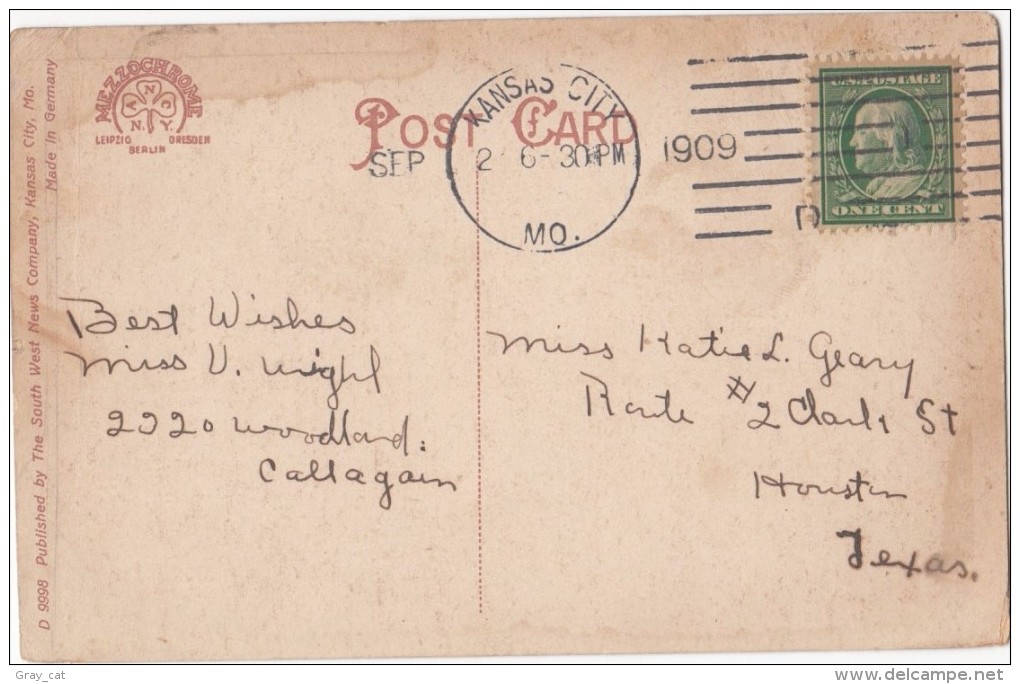 D 9998 Published by The South West News Company, Kansas City, Mo.
Made in Germany
MEZZOCHROME
A N C
N.Y.
LEIPZIG DRESDEN
BERLIN
POST CARD
SEP
KANSAS CITY
2 6-30 PM
MO.
1909
U.S. POSTAGE
ONE CENT
Best Wishes
Miss V. Wright
2220 Woodland.
Call again
Miss Katie L. Geary
Route #2 Clark St
Houston
Texas.
Gray_cat
delcampe.net